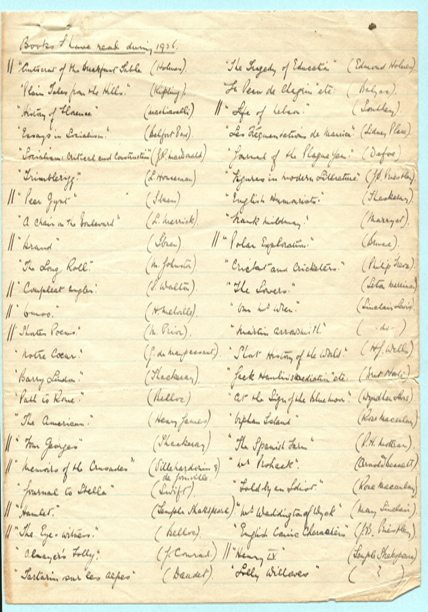 Books I have read during 1926.
|| "Autocrat of the Breakfast Table (Holmes)
"Plain Tales from the Hills." (Kipling)
"History of Florence" (Machiavelli)
"Essays in Socialism" (Belfort Bax)
"Socialism Critical and Constructive" (J.R. Macdonald)
"Trimblerigg" (L. Houseman)
|| "Peer Gynt" (Ibsen)
"A Chair on the Boulevard" (L. Merrick)
|| "Brand" (Ibsen)
"The Long Roll" (M. Johnston)
|| "Compleat Angler" (I. Walton)
|| "Omoo." (H. Melville)
|| "Shorter Poems" (M. Prior)
"Notre Coeur." (G. de Maupassant)
"Barry Lyndon" (Thackeray)
"Path to Rome." (Belloc)
"The American." (Henry James)
|| "Four Georges" (Thackeray)
|| "Memoirs of the Crusades" (Villehardouin & de Joinville)
"Journal to Stella" (Swift)
|| "Hamlet." (Temple Shakespeare)
|| "The Eye-Witness." (Belloc)
"Almayer's Folly." (J. Conrad)
"Tartarin sur les Alpes" (Daudet)
"The Tragedy of Education" (Edmond Holmes)
"La Peau de Chagrin" etc (Balzac)
|| "Life of Nelson" (Southey)
(Sidney
"Journal of the Plague Year" (Defoe)
"Figures in Modern Literature" (J.B. Priestley)
"English Humourists" (Thackeray)
"Frank Mildmay" (Marryat)
|| "Polar Exploration"
"Cricket and Cricketers." (Philip
"The Lovers."
"Our Mr Wren." (Sinclair Lewis)
"Martin Arrowsmith" ( - do - )
"Short History of the World" (H.G. Wells)
etc (Bret Harte)
"At the Sign of the Blue Moon"
"Orphan Island" (Rose Macaulay)
"The Spanish Farm" (R.H. Mottram)
"Mr Prohack" (Arnold Bennett)
"Told by an Idiot." (Rose Macaulay)
"Mr Waddington of Wyck" (May Sinclair)
"English Comic Characters" (J.B. Priestley)
|| "Henry IV" (Temple Shakespeare)
"Lolly Willowes" ( ? )